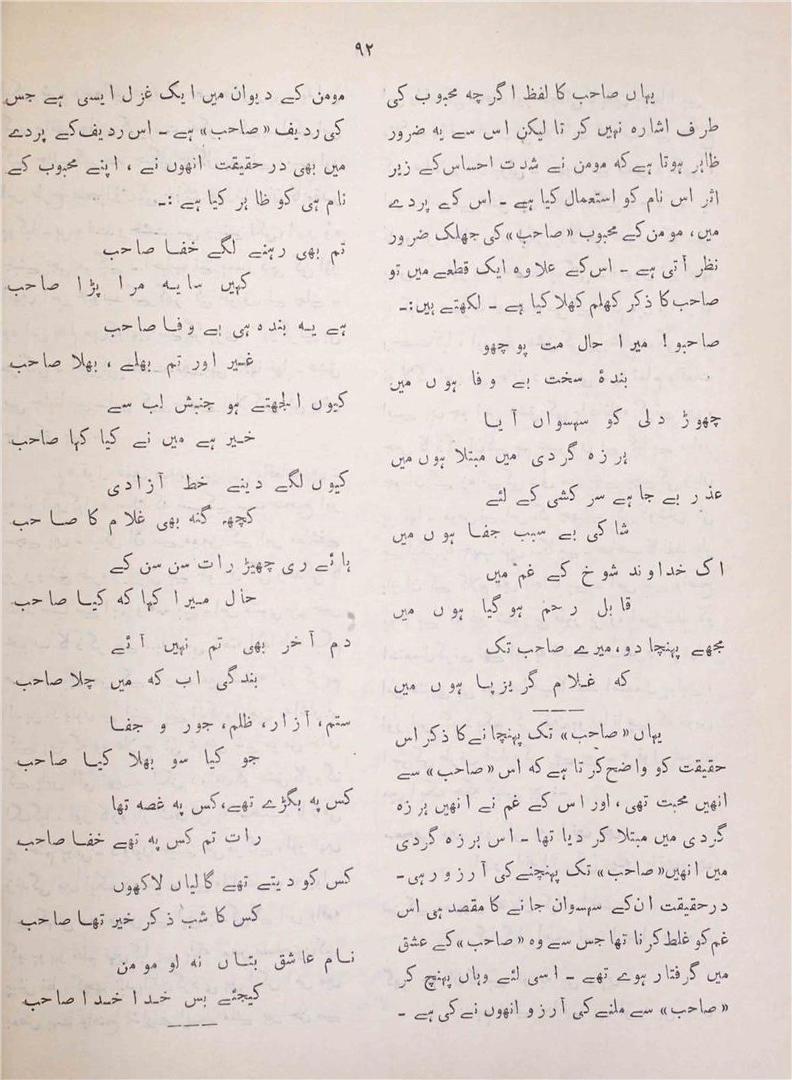 ۹۲
یہاں صاحب کا لفظ اگرچہ محبوب کی
طرف اشارہ نہیں کرتا لیکن اس سے یہ ضرور
ظاہر ہوتا ہے کہ مومن نے شدت احساس کے زیر
اثر اس نام کو استعمال کیا ہے ۔ اس کے پردے
میں، مومن کے محبوب «صاحب» کی جھلک ضرور
نظر آتی ہے ۔ اس کے علاوہ ایک قطعے میں تو
صاحب کا ذکر کھلم کھلا کیا ہے ۔ لکھتے ہیں:۔
صاحبو! میرا حال مت پوچھو
بندۂ سخت بے وفا ہوں میں
چھوڑ دلی کو سہسواں آیا
ہرزہ گردی میں مبتلا ہوں میں
عذر بے جا ہے سرکشی کے لئے
شاکی بے سبب جفا ہوں میں
اک خداوند شوخ کے غم میں
قابل رحم ہوگیا ہوں میں
مجھے پہنچا دو، میرے صاحب تک
کہ غلام گریز پا ہوں میں
یہاں «صاحب» تک پہنچانے کا ذکر اس
حقیقت کو واضح کرتا ہے کہ اس «صاحب» سے
انھیں محبت تھی، اور اس کے غم نے انھیں ہرزہ
گردی میں مبتلا کر دیا تھا ۔ اس ہرزہ گردی
میں انھیں «صاحب» تک پہنچنے کی آرزو رہی ۔
درحقیقت ان کے سہسوان جانے کا مقصد ہی اس
غم کو غلط کرنا تھا جس سے وہ «صاحب» کے عشق
میں گرفتار ہوے تھے ۔ اسی لئے وہاں پہنچ کر
«صاحب» سے ملنے کی آرزو انھوں نے کی ہے ۔
مومن کے دیوان میں ایک غزل ایسی ہے جس
کی ردیف «صاحب» ہے ۔ اس ردیف کے پردے
میں بھی درحقیقت انھوں نے ، اپنے محبوب کے
نام ہی کو ظاہر کیا ہے :۔
تم بھی رہنے لگے خفا صاحب
کہیں سایہ مرا پڑا صاحب
ہے یہ بندہ ہی بے وفا صاحب
غیر اور تم بھلے ، بھلا صاحب
کیوں الجھتے ہو جنبش لب سے
خیر ہے میں نے کیا کہا صاحب
کیوں لگے دینے خط آزادی
کچھ گنہ بھی غلام کا صاحب
ہائے ری چھیڑ رات سن سن کے
حال میرا کہا کہ کیا صاحب
دم آخر بھی تم نہیں آئے
بندگی اب کہ میں چلا صاحب
ستم، آزار، ظلم، جور و جفا
جو کیا سو بھلا کیا صاحب
کس پہ بگڑے تھے، کس پہ غصہ تھا
رات تم کس پہ تھے خفا صاحب
کس کو دیتے تھے گالیاں لاکھوں
کس کا شب ذکر خیر تھا صاحب
نام عاشق بتاں نہ لو مومن
کیجئے بس خدا خدا صاحب